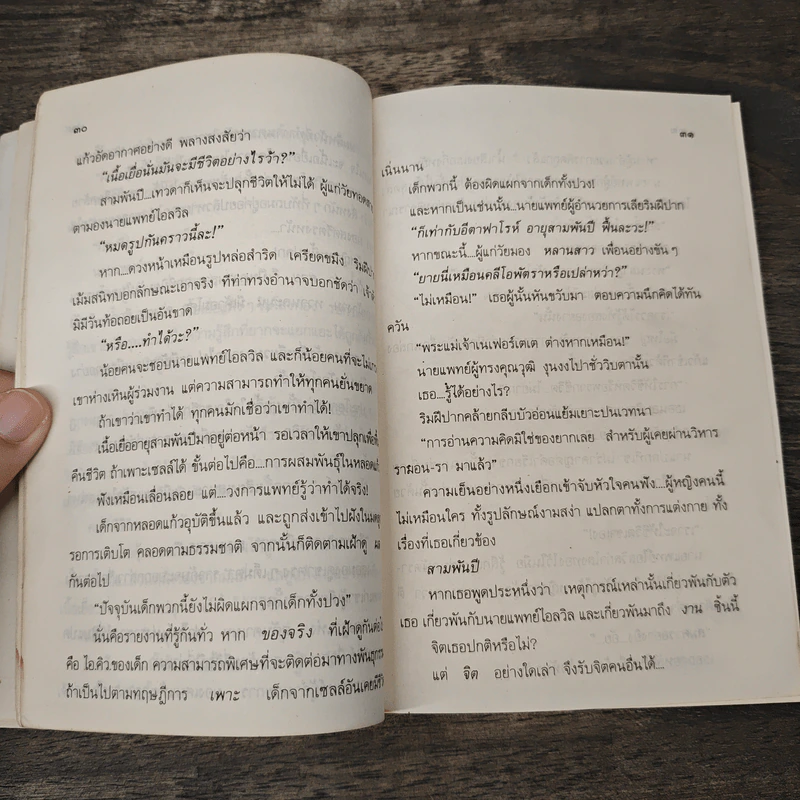 ๓๐
แก้วอัดอากาศอย่างดี พลางสงสัยว่า
“เนื้อเยื่อนั่นมันจะมีชีวิตอย่างไรว้า?”
สามพันปี...เทวดาก็เห็นจะปลุกชีวิตให้ไม่ได้ ผู้แก่วัยทอด
ตามองนายแพทย์ไอลวิล
“หมดรูปกันคราวนี้ละ!”
หาก...ดวงหน้าเหมือนรูปหล่อสำริด เครียดขมึง ริมฝีปาก
เม้มสนิทบอกลักษณะเอาจริง ทีท่าทรงอำนาจบอกชัดว่า
มิมีวันท้อถอยเป็นอันขาด
“หรือ....ทำได้วะ?”
น้อยคนจะชอบนายแพทย์ไอลวิล และก็น้อยคนที่จะไม่
เขาห่างเหินผู้ร่วมงาน แต่ความสามารถทำให้ทุกคนยั่นขยาด
ถ้าเขาว่าเขาทำได้ ทุกคนมักเชื่อว่าเขาทำได้!
เนื้อเยื่ออายุสามพันปีมาอยู่ต่อหน้า รอเวลาให้เขาปลุกเพื่อ
คืนชีวิต ถ้าเพาะเซลล์ได้ ขั้นต่อไปคือ....การผสมพันธุ์ในหลอดแก้ว
ฟังเหมือนเลื่อนลอย แต่....วงการแพทย์รู้ว่าทำได้จริง!
เด็กจากหลอดแก้วอุบัติขึ้นแล้ว และถูกส่งเข้าไปฝังในมดลูก
รอการเติบโต คลอดตามธรรมชาติ จากนั้นก็ติดตามเฝ้าดู
กันต่อไป
“ปัจจุบันเด็กพวกนี้ยังไม่ผิดแผกจากเด็กทั้งปวง”
นั่นคือรายงานที่รู้กันทั่ว หาก ของจริง ที่เฝ้าดูกันต่อไป
คือ ไอ.คิว.ของเด็ก ความสามารถพิเศษที่จะติดต่อมาทางพันธุกรรม
ถ้าเป็นไปตามทฤษฎีการ เพาะ เด็กจากเซลล์อันเคยมีชีวิต
๓๑
เนิ่นนาน
เด็กพวกนี้ ต้องผิดแผกจากเด็กทั้งปวง!
และหากเป็นเช่นนั้น...นายแพทย์ผู้อำนวยการเลียริมฝีปาก
“ก็เท่ากับอีตาฟาโรห์ อายุสามพันปี ฟื้นละวะ!”
หากขณะนี้....ผู้แก่วัยมอง หลานสาว เพื่อนอย่างขัน ๆ
“ยายนี่เหมือนคลีโอพัตราหรือเปล่าหว่า?”
“ไม่เหมือน!” เธอผู้นั้นหันขวับมา ตอบความนึกคิดได้ทัน
ควัน
“พระแม่เจ้าเนเฟอร์เตเต ต่างหากเหมือน!”
นายแพทย์ผู้ทรงคุณวุฒิ งุนงงไปชั่ววิบตานั้น
เธอ...รู้ได้อย่างไร?
ริมฝีปากคล้ายกลีบบัวอ่อนแย้มเยาะปนเวทนา
“การอ่านความคิดมิใช่ของยากเลย สำหรับผู้เคยผ่านวิหาร
รามอน-รา มาแล้ว”
ความเย็นอย่างหนึ่งเยือกเข้าจับหัวใจคนฟัง....ผู้หญิงคนนี้
ไม่เหมือนใคร ทั้งรูปลักษณ์งามสง่า แปลกตาทั้งการแต่งกาย ทั้ง
เรื่องที่เธอเกี่ยวข้อง
สามพันปี
หากเธอพูดประหนึ่งว่า เหตุการณ์เหล่านั้นเกี่ยวพันกับตัว
เธอ เกี่ยวพันกับนายแพทย์ไอลวิล และเกี่ยวพันมาถึง งาน ชิ้นนี้
จิตเธอปกติหรือไม่?
แต่ จิต อย่างใดเล่า จึงรับจิตคนอื่นได้....